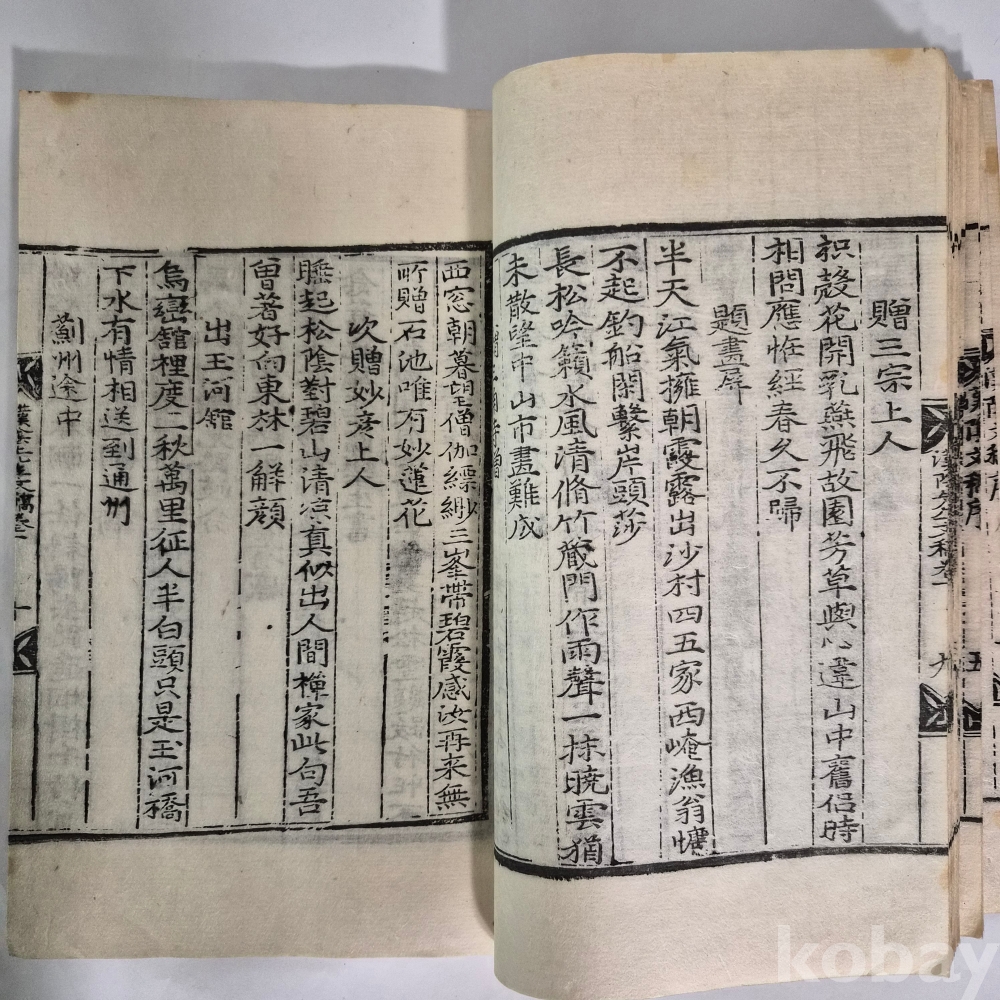 贈三宗上人
枳殼花開乳燕飛故園芳草與心違山中舊侶時
相問應恠經春久不歸
題畫屛
半天江氣擁朝霞露出沙村四五家西崦漁翁慵
不起釣船閑繫岸頭莎
長松吟籟水風清脩竹蔵門作雨聲一抹曉雲猶
未散隆中山市畫難成
西窓朝暮望僧伽縹緲三峯帶碧霞感汝再来無
所贈石池唯有妙蓮花
次贈妙彦上人
睡起松陰對碧山清凉真似出人間禅家此句吾
曽著好向東林一解顔
出玉河舘
烏蠻舘裡度二秋萬里征人半白頭只是玉河橋
下水有情相送到通州
薊州途中
漢陰先生文稿卷一
十
漢陰先生文稿卷一
九
五
kobay